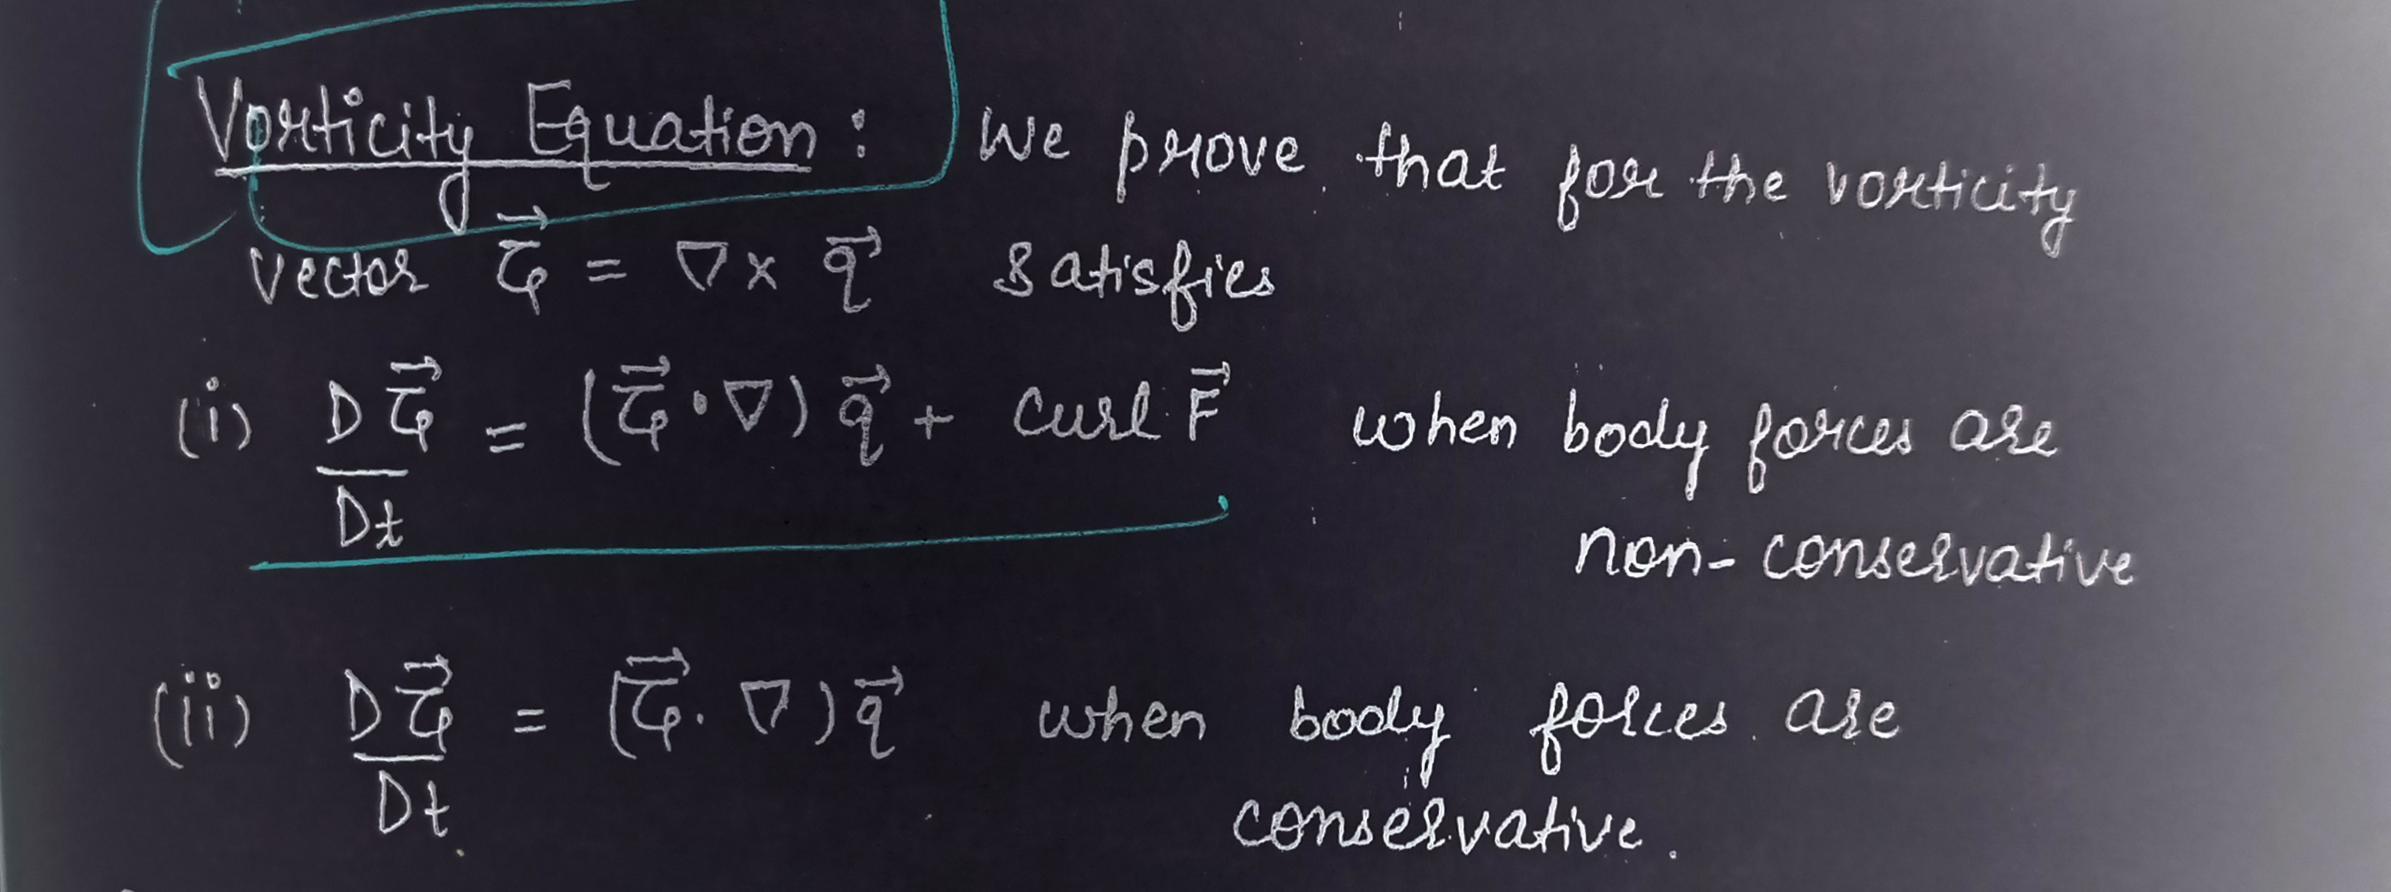 Vorticity Equation : We prove that for the vorticity
vector ζ⃗ = ∇ × q⃗ satisfies
(i) Dζ⃗/Dt = (ζ⃗ · ∇) q⃗ + curl F⃗ when body forces are
non-conservative
(ii) Dζ⃗/Dt = (ζ⃗ . ∇) q⃗ when body forces are
conservative.